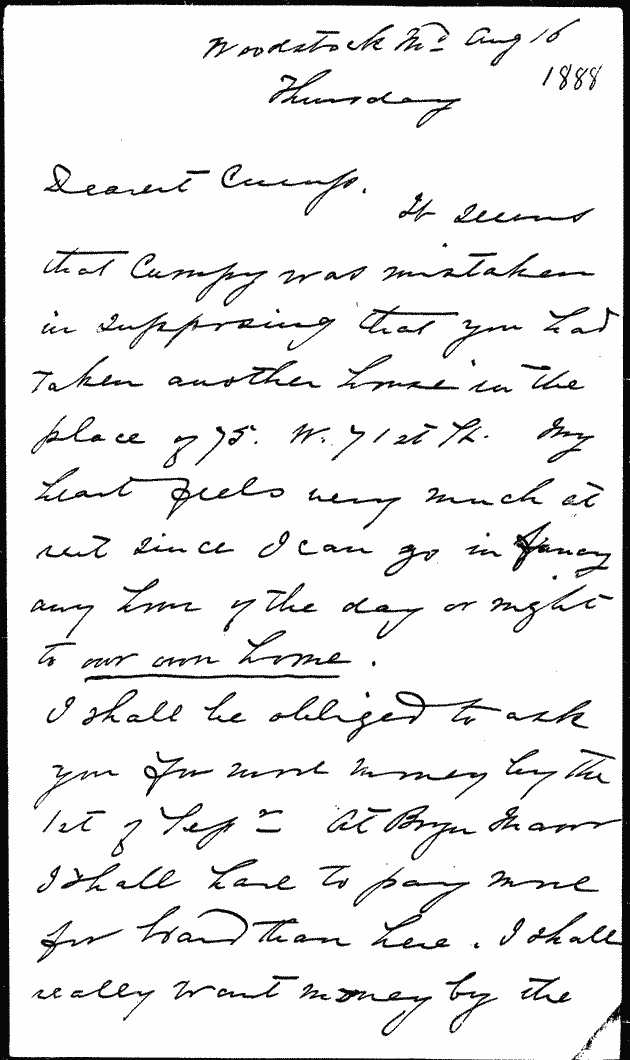 Woodstock Md Aug 16
1888
Thursday
Dearest Cump.
It seems
that Cumpy was mistaken
in supposing that you had
taken another house in the
place of 75. W. 71st St. My
heart feels very much at
rest since I can go in fancy
any hour of the day or night
to our own home.
I shall be obliged to ask
you for more money by the
1st of Sepr At Bryn Mawr
I shall have to pay more
for board than here. I shall
really want money by the